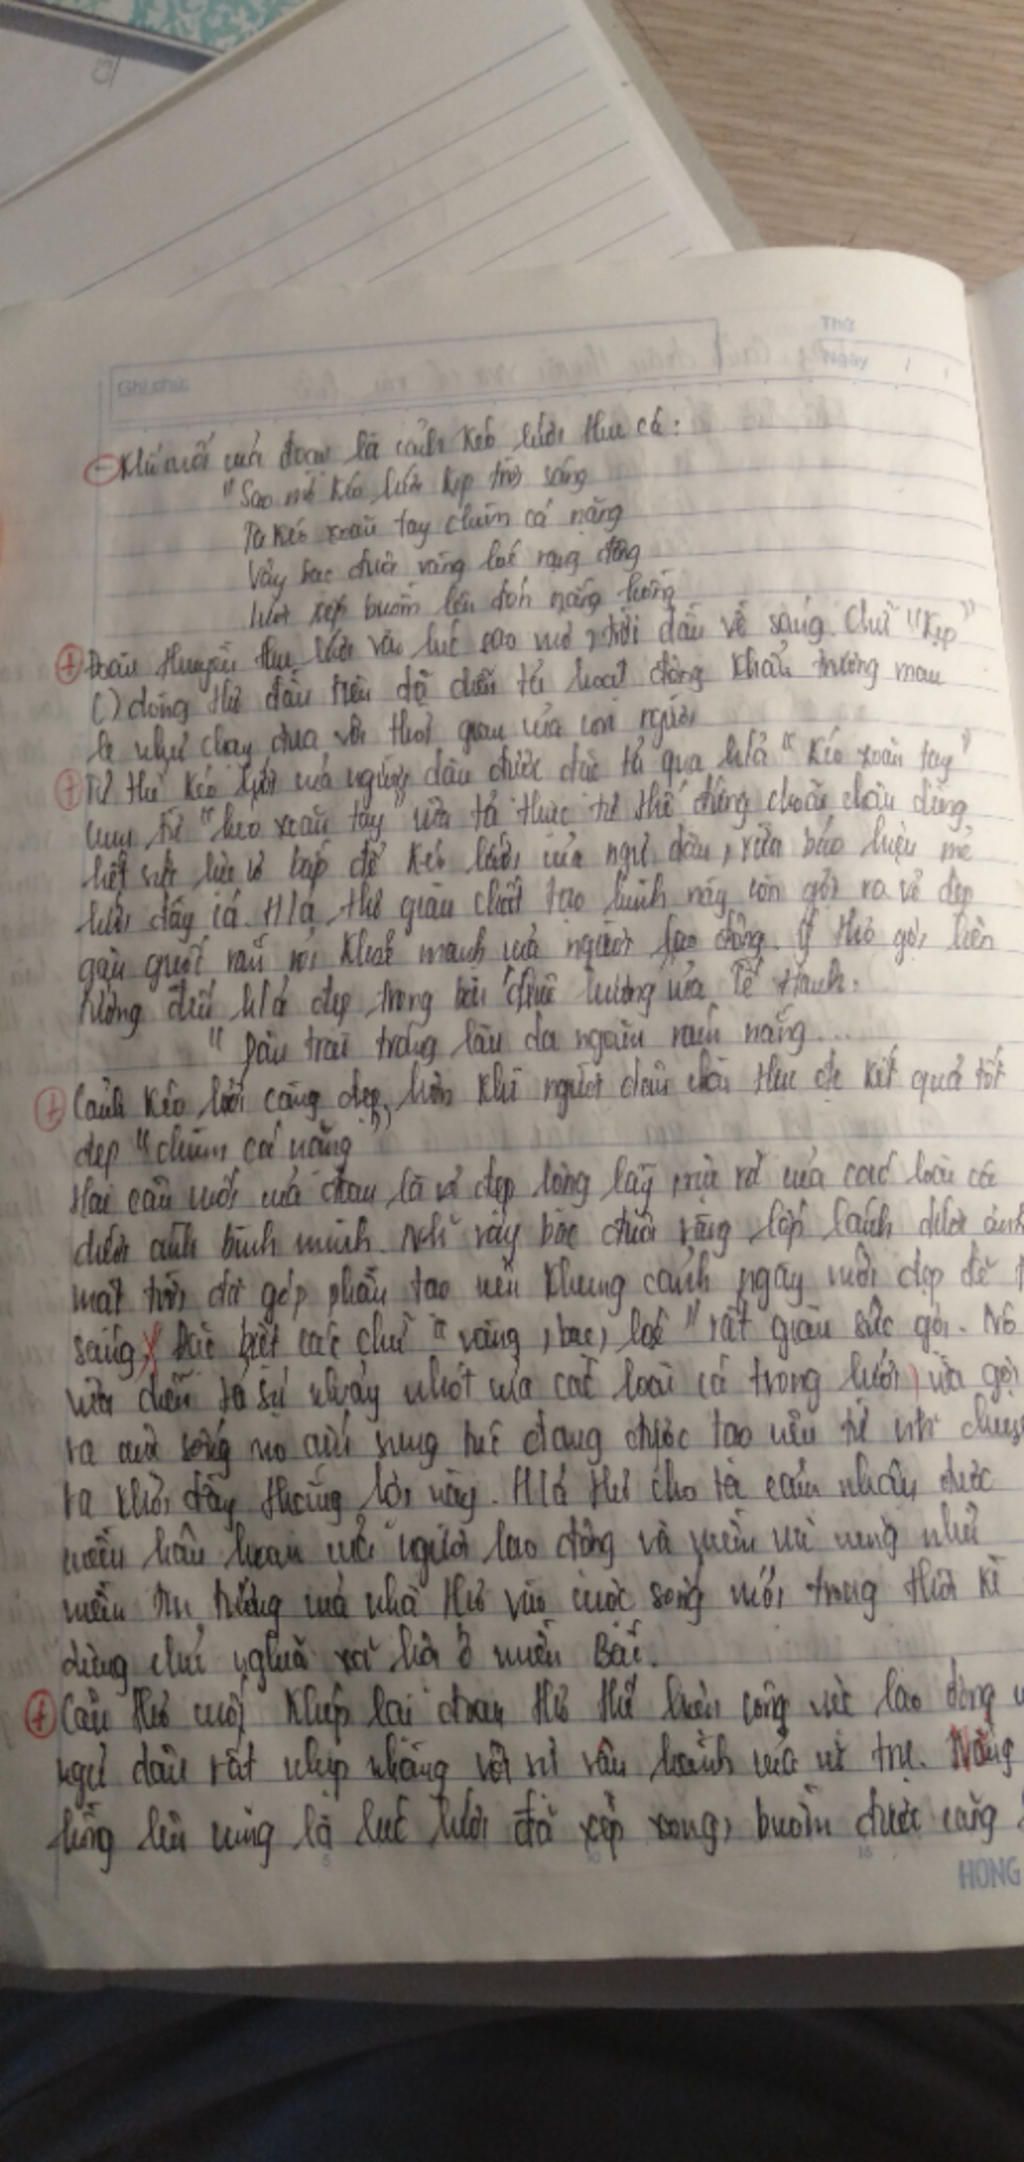 Thứ
Ngày
Ghi chú
- Khổ cuối của đoạn là cảnh kéo lưới thu cá:
"Sao mờ kéo lưới kịp trời sáng
Ta kéo xoăn tay chùm cá nặng
Vảy bạc đuôi vàng loé rạng đông
lưới xếp buồm lên đón nắng hồng
+ Đoàn thuyền thu lưới vào lúc sao mờ, trời dần về sáng. Chữ "kịp"
() dòng thơ đầu tiên đã diễn tả hoạt động khẩn trương mau
lẹ như chạy đua với thời gian của con người
+ Tư thế kéo lưới của người dân được đặc tả qua h/ả "kéo xoăn tay"
Cụm từ "kéo xoăn tay" vừa tả thực tư thế đứng choãi chân dùng
hết sức lực cơ bắp để kéo lưới của ngư dân, vừa báo hiệu mẻ
lưới đầy cá. H/ả thơ giàu chất tạo hình này còn gợi ra vẻ đẹp
gân guốc rắn rỏi khoẻ mạnh của người lao động. Ý thơ gợi liên
tưởng đến h/ả đẹp trong bài "Quê hương" của Tế Hanh:
" Dân trai tráng làn da ngăm rám nắng...
+ Cảnh kéo lưới càng đẹp hơn khi người dân chài thu đc kết quả tốt
đẹp "chùm cá nặng"
Hai câu cuối của đoạn là vẻ đẹp lộng lẫy, rực rỡ của các loài cá
dưới ánh bình minh. Những vảy bạc đuôi vàng lấp lánh dưới ánh
mặt trời đã góp phần tạo nên khung cảnh ngày mới đẹp đẽ
sáng, Đặc biệt các chữ "vàng, bạc, loé" rất giàu sức gợi. Nó
vừa diễn tả sự nhảy nhót của các loài cá trong lưới, vừa gợi
ra cuộc sống no ấm sung túc đang được tạo nên từ
ra khơi đầy thắng lợi này. H/ả thơ cho ta cảm nhận được
niềm hân hoan của người lao động và niềm vui cũng như
niềm tin tưởng của nhà thơ vào cuộc sống mới trong thời kì
dựng chủ nghĩa xã hội ở miền Bắc.
+ Câu thơ cuối khép lại đoạn thơ thể hiện công việc lao động
ngư dân rất nhịp nhàng với sự vận hành của vũ trụ. Nắng
hồng lên cũng là lúc lưới đã xếp xong, buồm được căng
5 10 15
HONG